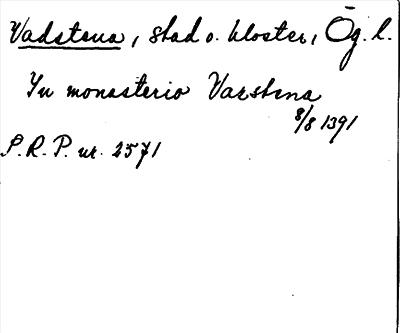 Vadstena, stad o. kloster, Ög. l.
In monasterio Varstena
8/8 1391
S.R.P. nr. 2571